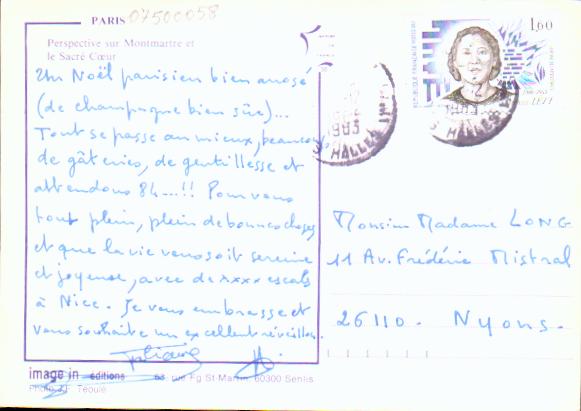 PARIS 07500058
Perspective sur Montmartre et
le Sacré Cœur
Un Noël parisien bien arrosé
(de champagne bien sûr)...
Tout se passe au mieux, beaucoup
de gâteries, de gentillesse et
attendons 84...!! Pour vous
tout plein, plein de bonnes choses
et que la vie vous soit sereine
et joyeuse, avec de xxxx escals
à Nice. Je vous embrasse et
vous souhaite un excellent réveillon.
image in editions 63 rue Fg St-Martin 60300 Senlis
Photo J.F. Téoulé
1,60
REPUBLIQUE FRANÇAISE POSTES
1983
HALLES
Monsieur Madame LONG
11 Av. Frédéric Mistral
26110. Nyons.